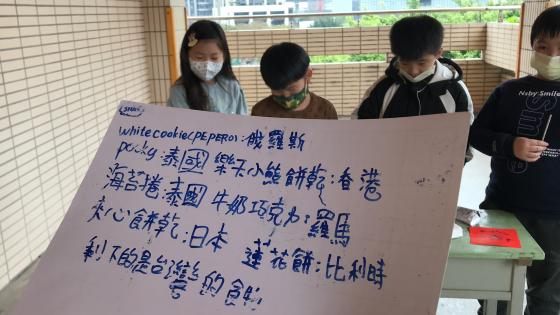 whitecookie(PEPERO):俄羅斯
pocky:泰國 樂天小熊餅乾:香港
海苔捲:泰國 牛奶巧克力:羅馬
夾心餅乾:日本 蓮花餅:比利時
剩下的是台灣的食物
Nxby Smile